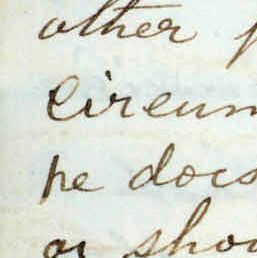 other p
Circum
he does
or shou